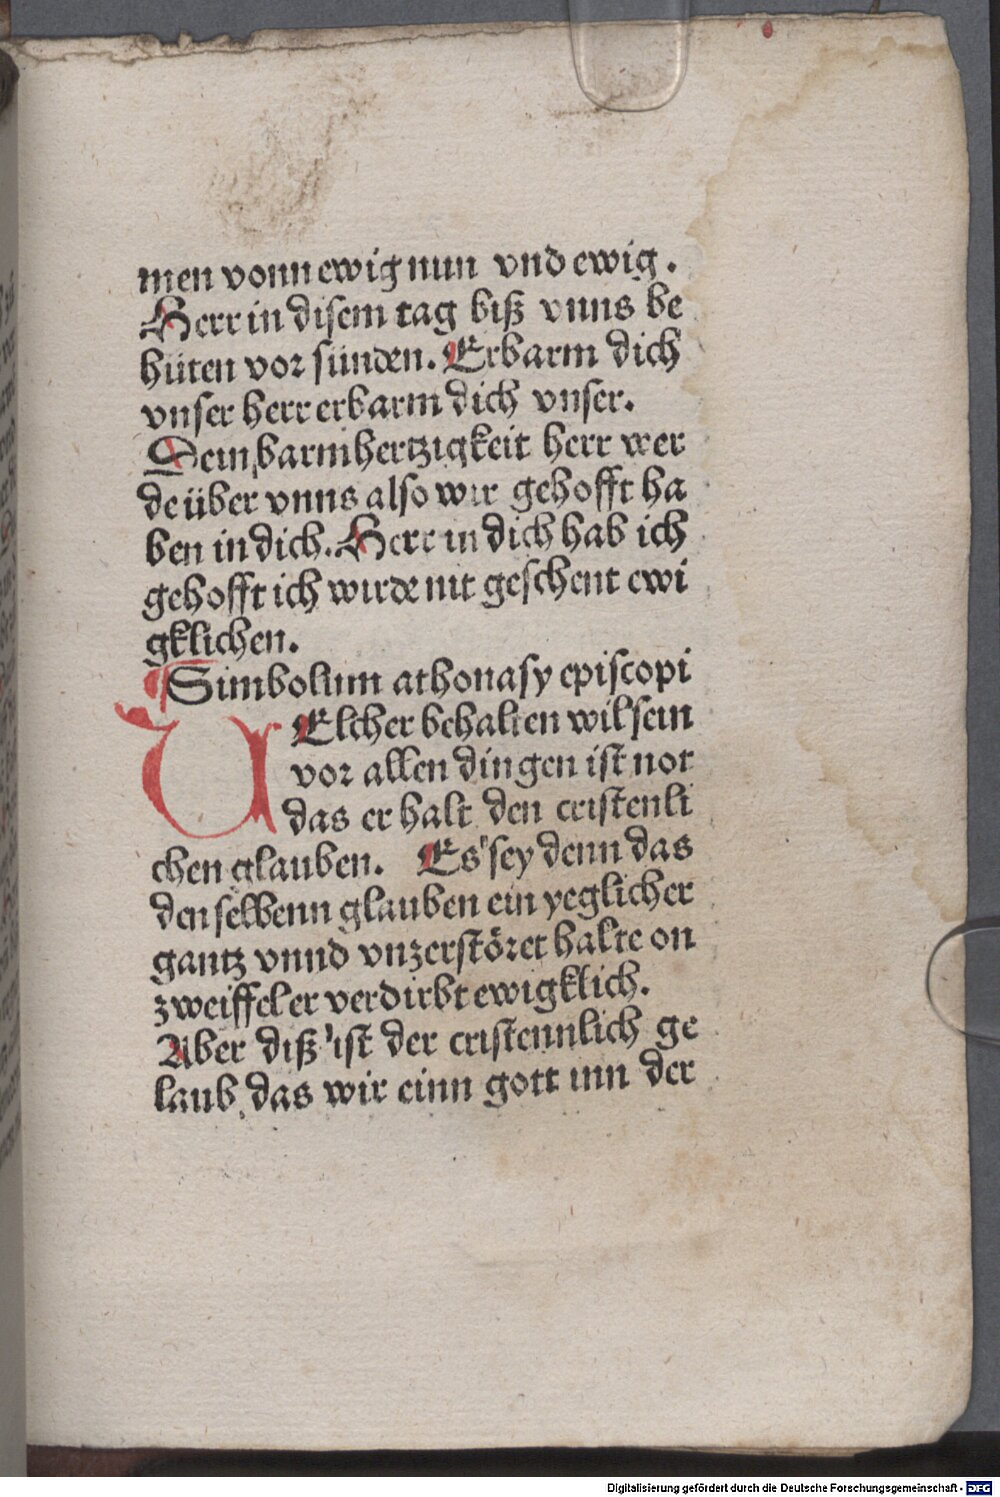 men vonn ewig nun vnd ewig.
Herr in disem tag biß vnns be
hüten vor sünden. Erbarm dich
vnser herr erbarm dich vnser.
Dein barmhertzigkeit herr wer
de über vnns also wir gehofft ha
ben in dich. Herr in dich hab ich
gehofft ich wirde nit geschent ewi
gklichen.
Simbolum athonasy episcopi
WElcher behalten wil sein
vor allen dingen ist not
das er halt den cristenli
chen glauben. Es sey denn das
den selbenn glauben ein yeglicher
gantz vnnd vnzerstöret halte on
zweiffel er verdirbt ewigklich.
Aber diß ist der cristennlich ge
laub das wir einn gott inn der
Digitalisierung gefördert durch die Deutsche Forschungsgemeinschaft - DFG